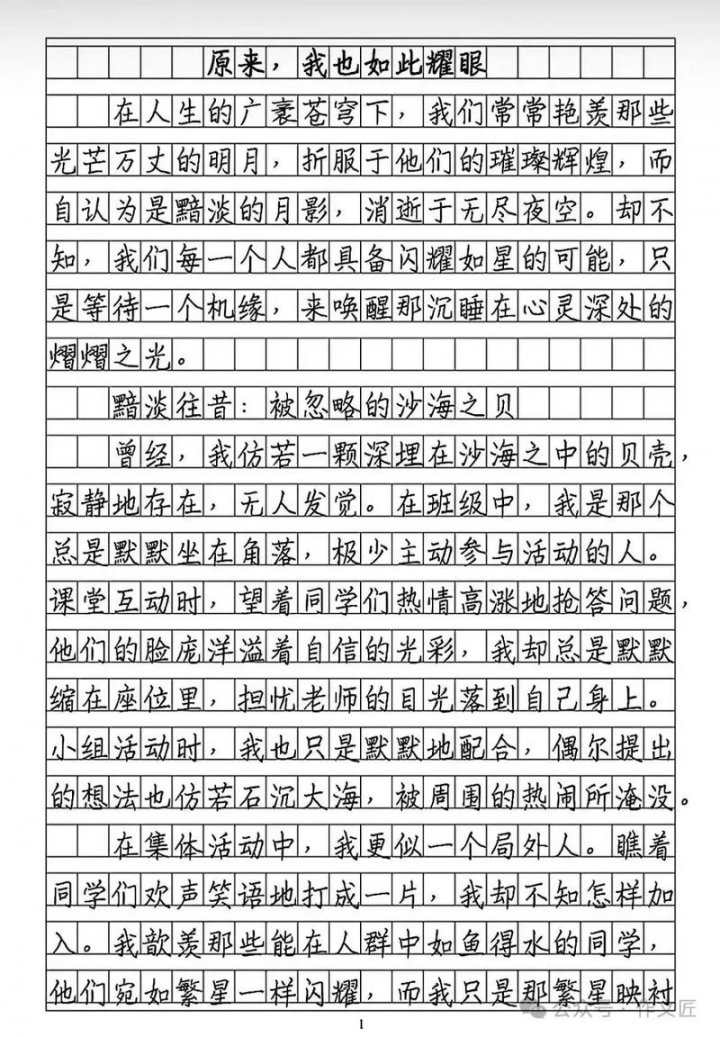 原来，我也如此耀眼
在人生的广袤苍穹下，我们常常艳羡那些
光芒万丈的明月，折服于他们的璀璨辉煌，而
自认为是黯淡的月影，消逝于无尽夜空。却不
知，我们每一个人都具备闪耀如星的可能，只
是等待一个机缘，来唤醒那沉睡在心灵深处的
熠熠之光。
黯淡往昔：被忽略的沙海之贝
曾经，我仿若一颗深埋在沙海之中的贝壳，
寂静地存在，无人发觉。在班级中，我是那个
总是默默坐在角落，极少主动参与活动的人。
课堂互动时，望着同学们热情高涨地抢答问题，
他们的脸庞洋溢着自信的光彩，我却总是默默
缩在座位里，担忧老师的目光落到自己身上。
小组活动时，我也只是默默地配合，偶尔提出
的想法也仿若石沉大海，被周围的热闹所淹没。
在集体活动中，我更似一个局外人。瞧着
同学们欢声笑语地打成一片，我却不知怎样加
入。我歆羡那些能在人群中如鱼得水的同学，
他们宛如繁星一样闪耀，而我只是那繁星映衬
公众号·作文匠
1